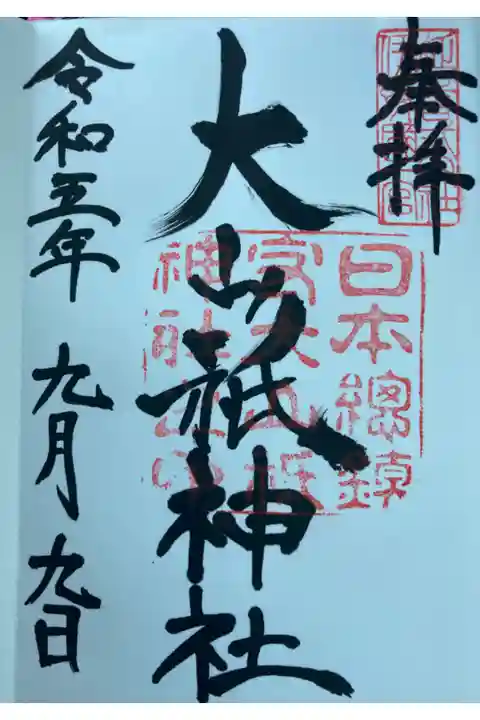 奉拝
日本總鎮
守大山祇
神社
大山祇神社
令和五年 九月 九日